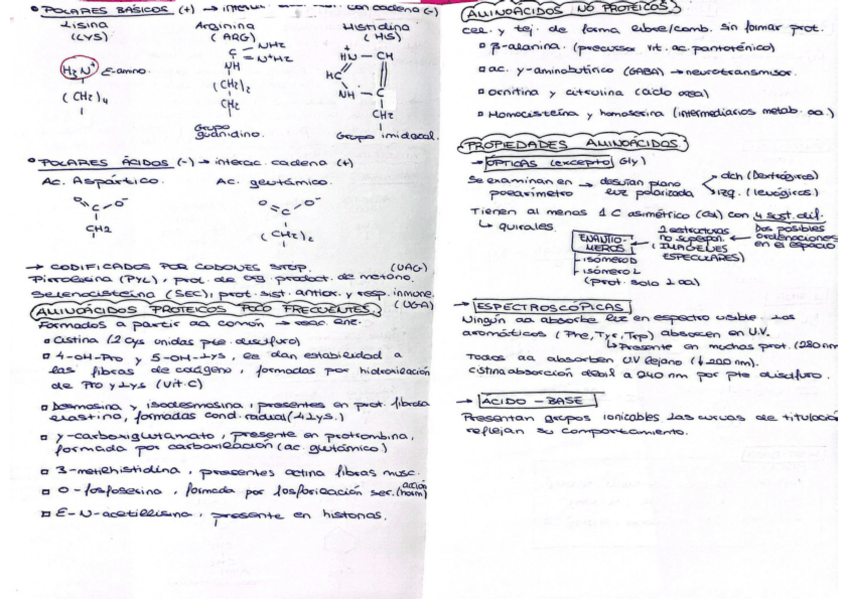 • POLARES BÁSICOS (+) → interac. con cadena (-)
Lisina
(LYS)
Arginina
(ARG)
Histidina
(HIS)
H₃N⁺ E-amino.
(CH₂)₄
C
NH₂
N⁺H₂
NH
(CH₂)₂
CH₂
Grupo
guanidino.
HN
CH
HC
NH
C
CH₂
Grupo imidazol.
• POLARES ÁCIDOS (-) → interac. cadena (+)
Ac. Aspártico.
Ac. glutámico.
O
C
O⁻
CH2
O
C
O⁻
(CH₂)₂
→ CODIFICADOS POR CODONES STOP. (UAG)
Pirrolisina (PYL), prot. de org. product. de metano.
Selenocisteína (SEC), prot. sist. antiox. y resp. inmune. (UGA)
AMINOÁCIDOS PROTEICOS POCO FRECUENTES.
Formados a partir aa común → reac. enz.
Cistina (2 cys unidas pte. disulfuro)
4-OH-Pro y 5-OH-Lys, le dan estabilidad a
las fibras de colágeno, formadas por hidroxilación
de Pro y Lys (Vit.C)
Desmosina y isodesmosina, presentes en prot. fibrosa
elastina, formadas cond. radical (4 Lys.)
γ-carboxiglutamato, presente en protrombina,
formada por carboxilación (ac. glutámico)
3-metilhistidina, presentes actina fibras musc.
O-fosfoserina, formada por fosforilación ser. (acción horm)
E-N-acetillisina, presente en histonas.
AMINOÁCIDOS NO PROTEICOS.
cel. y tej. de forma libre/comb. sin formar prot.
β-alanina. (precursor vit. ac. pantoténico)
ac. γ-aminobutírico (GABA) → neurotransmisor.
Ornitina y citrulina (ciclo urea)
Homocisteína y homoserina (intermediarios metab. aa.)
PROPIEDADES AMINOÁCIDOS
→ ÓPTICAS (excepto Gly)
Se examinan en
polarímetro
→ desvían plano
luz polarizada
dch (Dextrógiros)
izq. (levógiros)
Tienen al menos 1 C asimétrico (Cα) con 4 sust. dif.
↳ quirales.
ENANTIO-
MEROS
isómero D
isómero L
(prot. solo L aa)
2 estructuras
no superpon.
(IMÁGENES
ESPECULARES)
Dos posibles
ordenaciones
en el espacio
→ ESPECTROSCÓPICAS
Ningún aa absorbe luz en espectro visible. Los
aromáticos (Phe, Tyr, Trp) absorben en U.V.
↳ Presente en muchas prot. (280 nm
Todos aa absorben U.V lejano (↓ 220 nm).
cistina absorción débil a 240 nm por pte disulfuro.
→ ÁCIDO - BASE
Presentan grupos ionizables las curvas de titulació
reflejan su comportamiento.